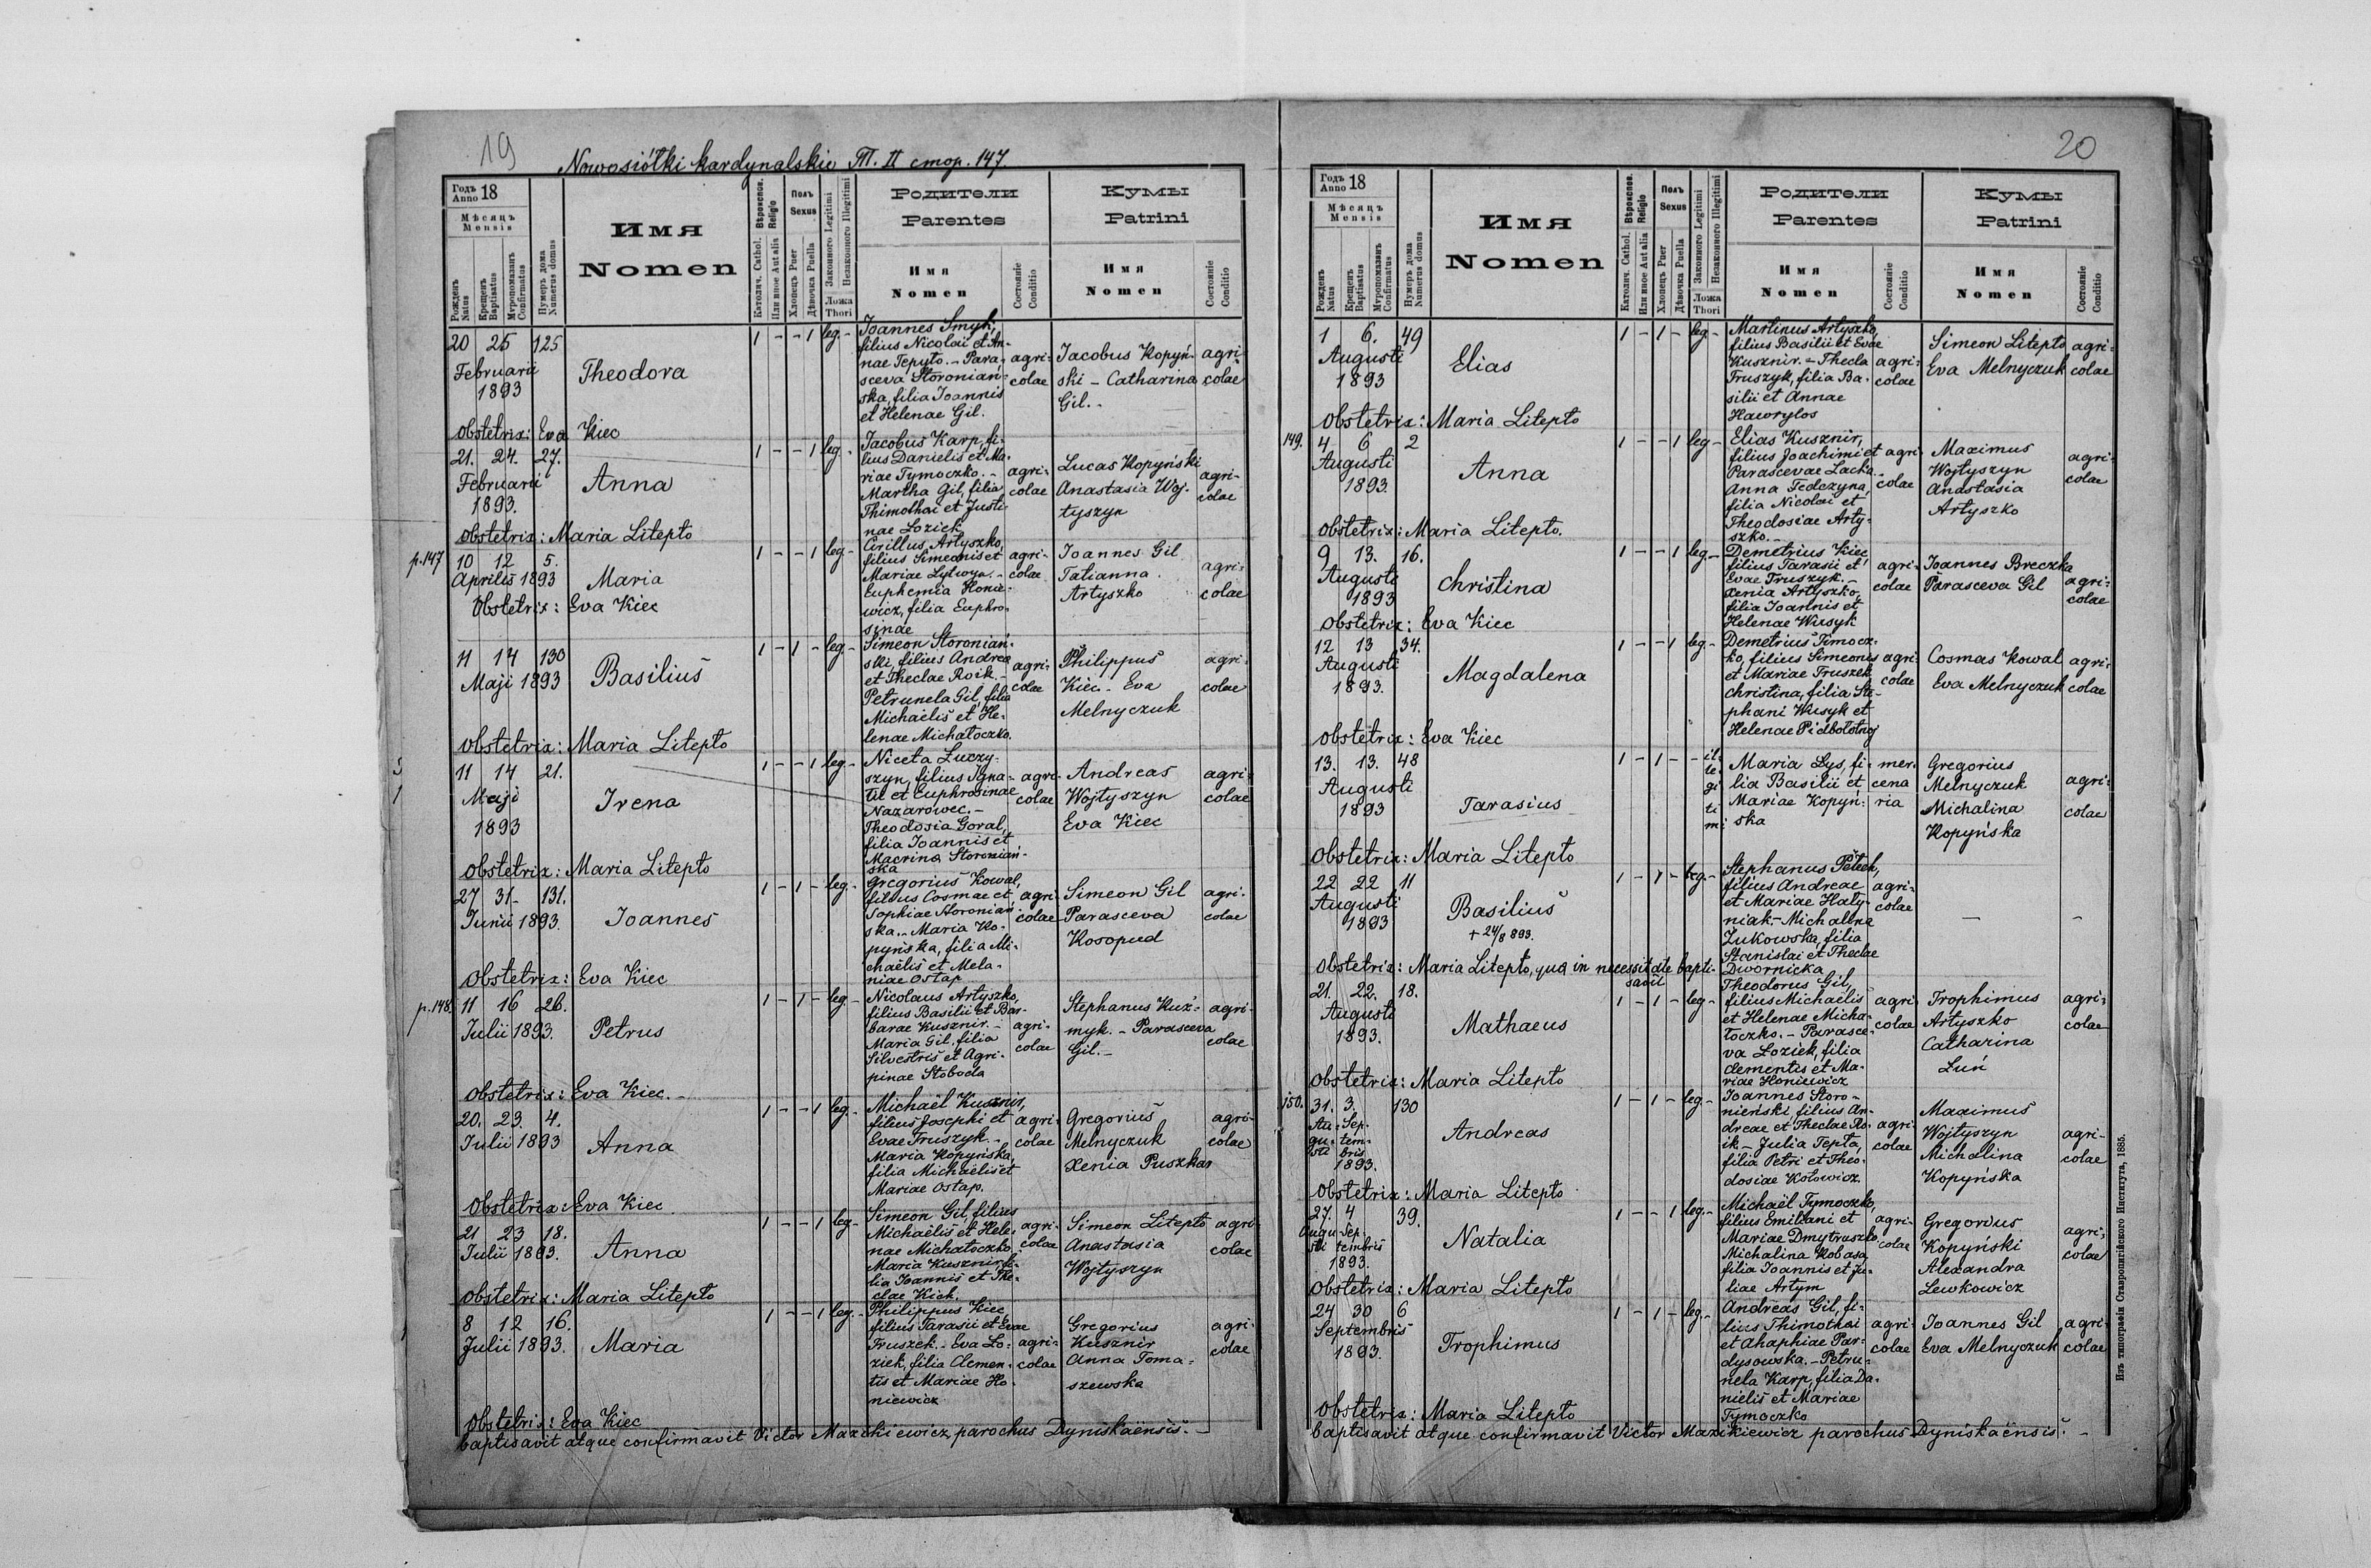 19
Nowosiółki kardynalskie T. II стор. 147.
Годъ Anno 18
Мѣсяцъ Mensis
Рожденъ Natus
Крещенъ Baptisatus
Мѵропомазанъ Confirmatus
Нумеръ дома Numerus domus
Имя
Nomen
Вѣроиспов. Religio
Католич. Cathol.
Или иное Aut alia
Полъ Sexus
Хлопецъ Puer
Дѣвочка Puella
Законного Legitimi
Незаконного Illegitimi
Ложа Thori
Родители
Parentes
Имя
Nomen
Состояніе Conditio
Кумы
Patrini
Имя
Nomen
Состояніе Conditio
20 25 125
Februarii
1893
Theodora
1 - - 1 leg. -
Joannes Smyk,
filius Nicolai et An-
nae Tepyto. - Para-
sceva Storoniań-
ska, filia Joannis
et Helenae Gil.
agri-
colae
Jacobus Kopyń-
ski - Catharina
Gil. -
agri-
colae
Obstetrix: Eva Kiec
21. 24. 27.
Februarii
1893.
Anna
1 - - 1 leg. -
Jacobus Karp, fi-
lius Danielis et Ma-
riae Tymoczko. -
Martha Gil, filia
Thimothai et Justi-
nae Loziek
agri-
colae
Lucas Kopyński
Anastasia Woj-
tyszyn
agri-
colae
Obstetrix: Maria Litepto
p. 147
10 12 5.
Aprilis 1893
Maria
1 - - 1 leg -
Cirillus Artyszko,
filius Simeonis et
Mariae Lytwyn. -
Euphemia Honie-
wicz, filia Euphro-
sinae
agri-
colae
Joannes Gil
Tatianna
Artyszko
agri-
colae
Obstetrix: Eva Kiec
11 14 130
Maji 1893
Basilius
1 - 1 - leg. -
Simeon Storoniań-
ski, filius Andrea
et Theclae Roik. -
Petrunela Gil, filia
Michaëlis et He-
lenae Michatoczko.
agri-
colae
Philippus
Kiec - Eva
Melnyczuk
agri-
colae
Obstetrix: Maria Litepto
11 14 21.
Maji
1893
Irena
1 - - 1 leg -
Niceta Luczy-
szyn, filius Igna-
tii et Euphrosinae
Nazarowec. -
Theodosia Goral,
filia Joannis et
Macrina Storoniań-
ska
agri-
colae
Andreas
Wojtyszyn
Eva Kiec
agri-
colae
Obstetrix: Maria Litepto
27 31 - 131.
Junii 1893.
Joannes
1 - 1 - leg. -
Gregorius Kowal,
filius Cosmae et
Sophiae Storoniań-
ska. - Maria Ko-
pyńska, filia Mi-
chaëlis et Mela-
niae Ostap
agri-
colae
Simeon Gil
Parasceva
Kosopud
agri-
colae
Obstetrix: Eva Kiec
p. 148.
11 16 26.
Julii 1893.
Petrus
1 - 1 - leg -
Nicolaus Artyszko,
filius Basilii et Bar-
barae Kusznir. -
Maria Gil, filia
Silvestris et Agri-
pinae Stoboda
agri-
colae
Stephanus Kuź-
myk. - Parasceva
Gil. -
agri-
colae
Obstetrix: Eva Kiec. -
20. 23. 4.
Julii 1893
Anna
1 - - 1 leg. -
Michaël Kusznir,
filius Josephi et
Evae Truszyk. -
Maria Kopyńska,
filia Michaëlis et
Mariae Ostap.
agri-
colae
Gregorius
Melnyczuk
Xenia Puszkar
agri-
colae
Obstetrix: Eva Kiec
21 23 18.
Julii 1893.
Anna
1 - - 1 leg -
Simeon Gil, filius
Michaëlis et Hele-
nae Michatoczko. -
Maria Kusznir fi-
lia Joannis et The-
clae Kick.
agri-
colae
Simeon Litepto
Anastasia
Wojtyszyn
agri-
colae
Obstetrix: Maria Litepto
8 12 16.
Julii 1893.
Maria
1 - - 1 leg. -
Philippus Kiec,
filius Tarasii et Evae
Truszek. - Eva Lo-
ziek, filia Clemen-
tis et Mariae Ho-
niewicz
agri-
colae
Gregorius
Kusznir
Anna Toma-
szewska
agri-
colae
Obstetrix: Eva Kiec
baptisavit atque confirmavit Victor Mazikiewicz, parochus Dyniskaënsis. -
20
Годъ Anno 18
Мѣсяцъ Mensis
Рожденъ Natus
Крещенъ Baptisatus
Мѵропомазанъ Confirmatus
Нумеръ дома Numerus domus
Имя
Nomen
Вѣроиспов. Religio
Католич. Cathol.
Или иное Aut alia
Полъ Sexus
Хлопецъ Puer
Дѣвочка Puella
Законного Legitimi
Незаконного Illegitimi
Ложа Thori
Родители
Parentes
Имя
Nomen
Состояніе Conditio
Кумы
Patrini
Имя
Nomen
Состояніе Conditio
1 6. 49
Augusti
1893
Elias
1 - 1 - leg -
Martinus Artyszko,
filius Basilii et Evae
Kusznir. - Thecla
Truszyk, filia Ba-
silii et Annae
Hawrylos
agri-
colae
Simeon Litepto
Eva Melnyczuk
agri-
colae
Obstetrix: Maria Litepto
149.
4 6 2
Augusti
1893.
Anna
1 - - 1 leg -
Elias Kusznir,
filius Joachimi et
Parascevae Lacka. -
Anna Fedczyna,
filia Nicolai et
Theodosiae Arty-
szko. -
agri-
colae
Maximus
Wojtyszyn
Anastasia
Artyszko
agri-
colae
Obstetrix: Maria Litepto.
9 13. 16.
Augusti
1893
Christina
1 - - 1 leg. -
Demetrius Kiec,
filius Tarasii et
Evae Truszyk. -
Xenia Artyszko,
filia Joannis et
Helenae Wusyk
agri-
colae
Joannes Breczka
Parasceva Gil
agri-
colae
Obstetrix: Eva Kiec
12 13 34.
Augusti
1893.
Magdalena
1 - - 1 leg -
Demetrius Timocz-
ko, filius Simeonis
et Mariae Truszek
Christina, filia Ste-
phani Wusyk et
Helenae Pidbolotny
agri-
colae
Cosmas Kowal
Eva Melnyczuk
agri-
colae
Obstetrix: Eva Kiec
13. 13. 48
Augusti
1893
Tarasius
1 - 1 - - il-
le-
gi
ti
mi
Maria Lys, fi-
lia Basilii et
Mariae Kopyń-
ska
mer-
cena
ria
Gregorius
Melnyczuk
Michalina
Kopyńska
agri-
colae
Obstetrix: Maria Litepto
22 22 11
Augusti
1893
Basilius
+ 24/8 893.
1 - 1 - leg. -
Stephanus Petech,
filius Andreae
et Mariae Haty-
niak. - Michalina
Zukowska, filia
Stanislai et Theclae
Dwornicka
agri-
colae
-
-
Obstetrix: Maria Litepto, qua in necessitate bapti-
savit
21. 22. 18.
Augusti
1893.
Mathaeus
1 - 1 - leg -
Theodorus Gil,
filius Michaëlis
et Helenae Micha-
toczko. - Parasce-
va Loziek, filia
Clementis et Ma-
riae Honiewicz
agri-
colae
Trophimus
Artyszko
Catharina
Luń
agri-
colae
Obstetrix: Maria Litepto
150.
31. 3. 130
Au- Sep-
gu- tem-
sti bris
1893.
Andreas
1 - 1 - leg -
Joannes Storo-
nieński, filius An-
dreae et Theclae Ro-
ik - Julia Tepta,
filia Petri et Theo-
dosiae Kotowicz
agri-
colae
Maximus
Wojtyszyn
Michalina
Kopyńska
agri-
colae
Obstetrix: Maria Litepto
27. 4 39.
Augu- Sep-
sti tembris
1893.
Natalia
1 - - 1 leg. -
Michaël Tymoczko,
filius Emiliani et
Mariae Dmytruszko
Michalina Kobasa
filia Joannis et Ju-
liae Artym
agri-
colae
Gregorius
Kopyński
Alexandra
Lewkowicz
agri-
colae
Obstetrix: Maria Litepto
24 30 6
Septembris
1893.
Trophimus
1 - 1 - leg. -
Andreas Gil, fi-
lius Thimothai
et Ahaphiae Par-
dysowska. - Petru-
nela Karp, filia Da-
nielis et Mariae
Tymoczko
agri-
colae
Joannes Gil
Eva Melnyczuk
agri-
colae
Obstetrix: Maria Litepto
baptisavit atque confirmavit Victor Mazikiewicz parochus Dyniskaënsis. -
Изъ типографіи Ставропигійского Института, 1885.